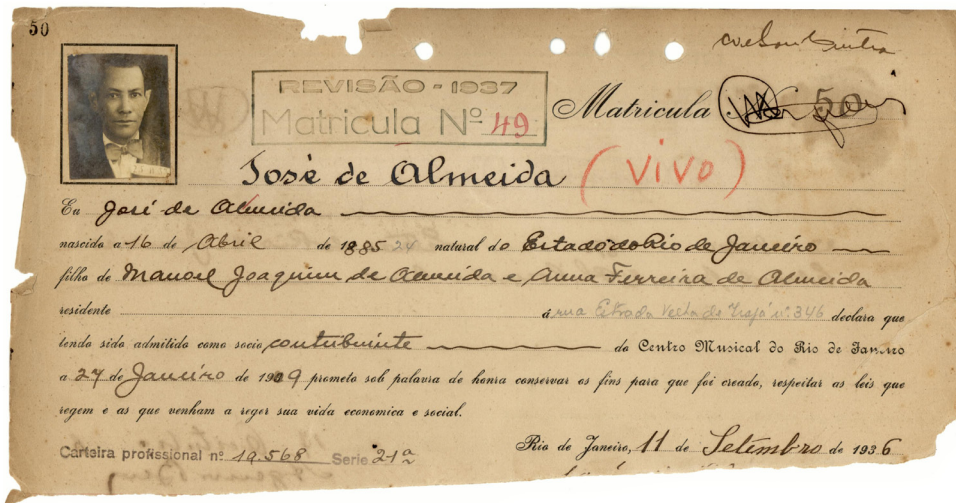 50
REVISÃO - 1937
Matricula Nº 49
Matricula 50
José de Almeida (vivo)
Eu José de Almeida
nascido a 16 de Abril de 1885 24 natural do Estado do Rio de Janeiro
filho de Manoel Joaquim de Almeida e Anna Ferreira de Almeida
residente á rua Estrada Velha da n.º 346 declara que
tendo sido admitido como socio contribuinte do Centro Musical do Rio de Janeiro
a 27 de Janeiro de 1909 prometo sob palavra de honra conservar os fins para que foi creado, respeitar as leis que
regem e as que venham a reger sua vida economica e social.
Rio de Janeiro, 11 de Setembro de 1936
Carteira profissional nº 19.568 Serie 21ª